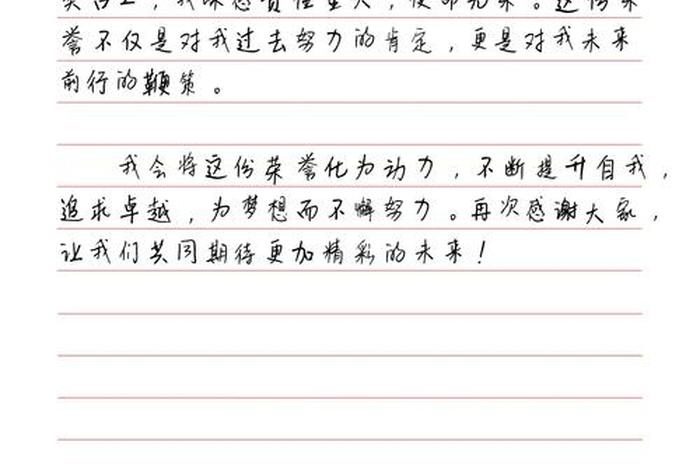 誉不仅是对我过去努力的肯定，更是对我未来
前行的鞭策。
我会将这份荣誉化为动力，不断提升自我，
追求卓越，为梦想而不懈努力。再次感谢大家，
让我们共同期待更加精彩的未来！